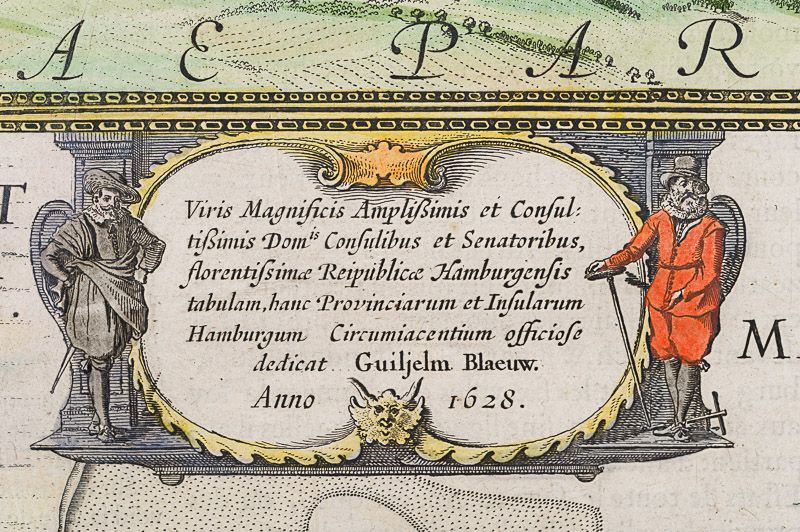 A E P A R
T
Viris Magnificis Ampliſsimis et Conſul-
tiſsimis Domis Conſulibus et Senatoribus,
florentiſsimæ Reipublicæ Hamburgenſis
tabulam, hanc Provinciarum et Inſularum
Hamburgum Circumiacentium officioſe
dedicat Guiljelm Blaeuw.
Anno 1628.
M